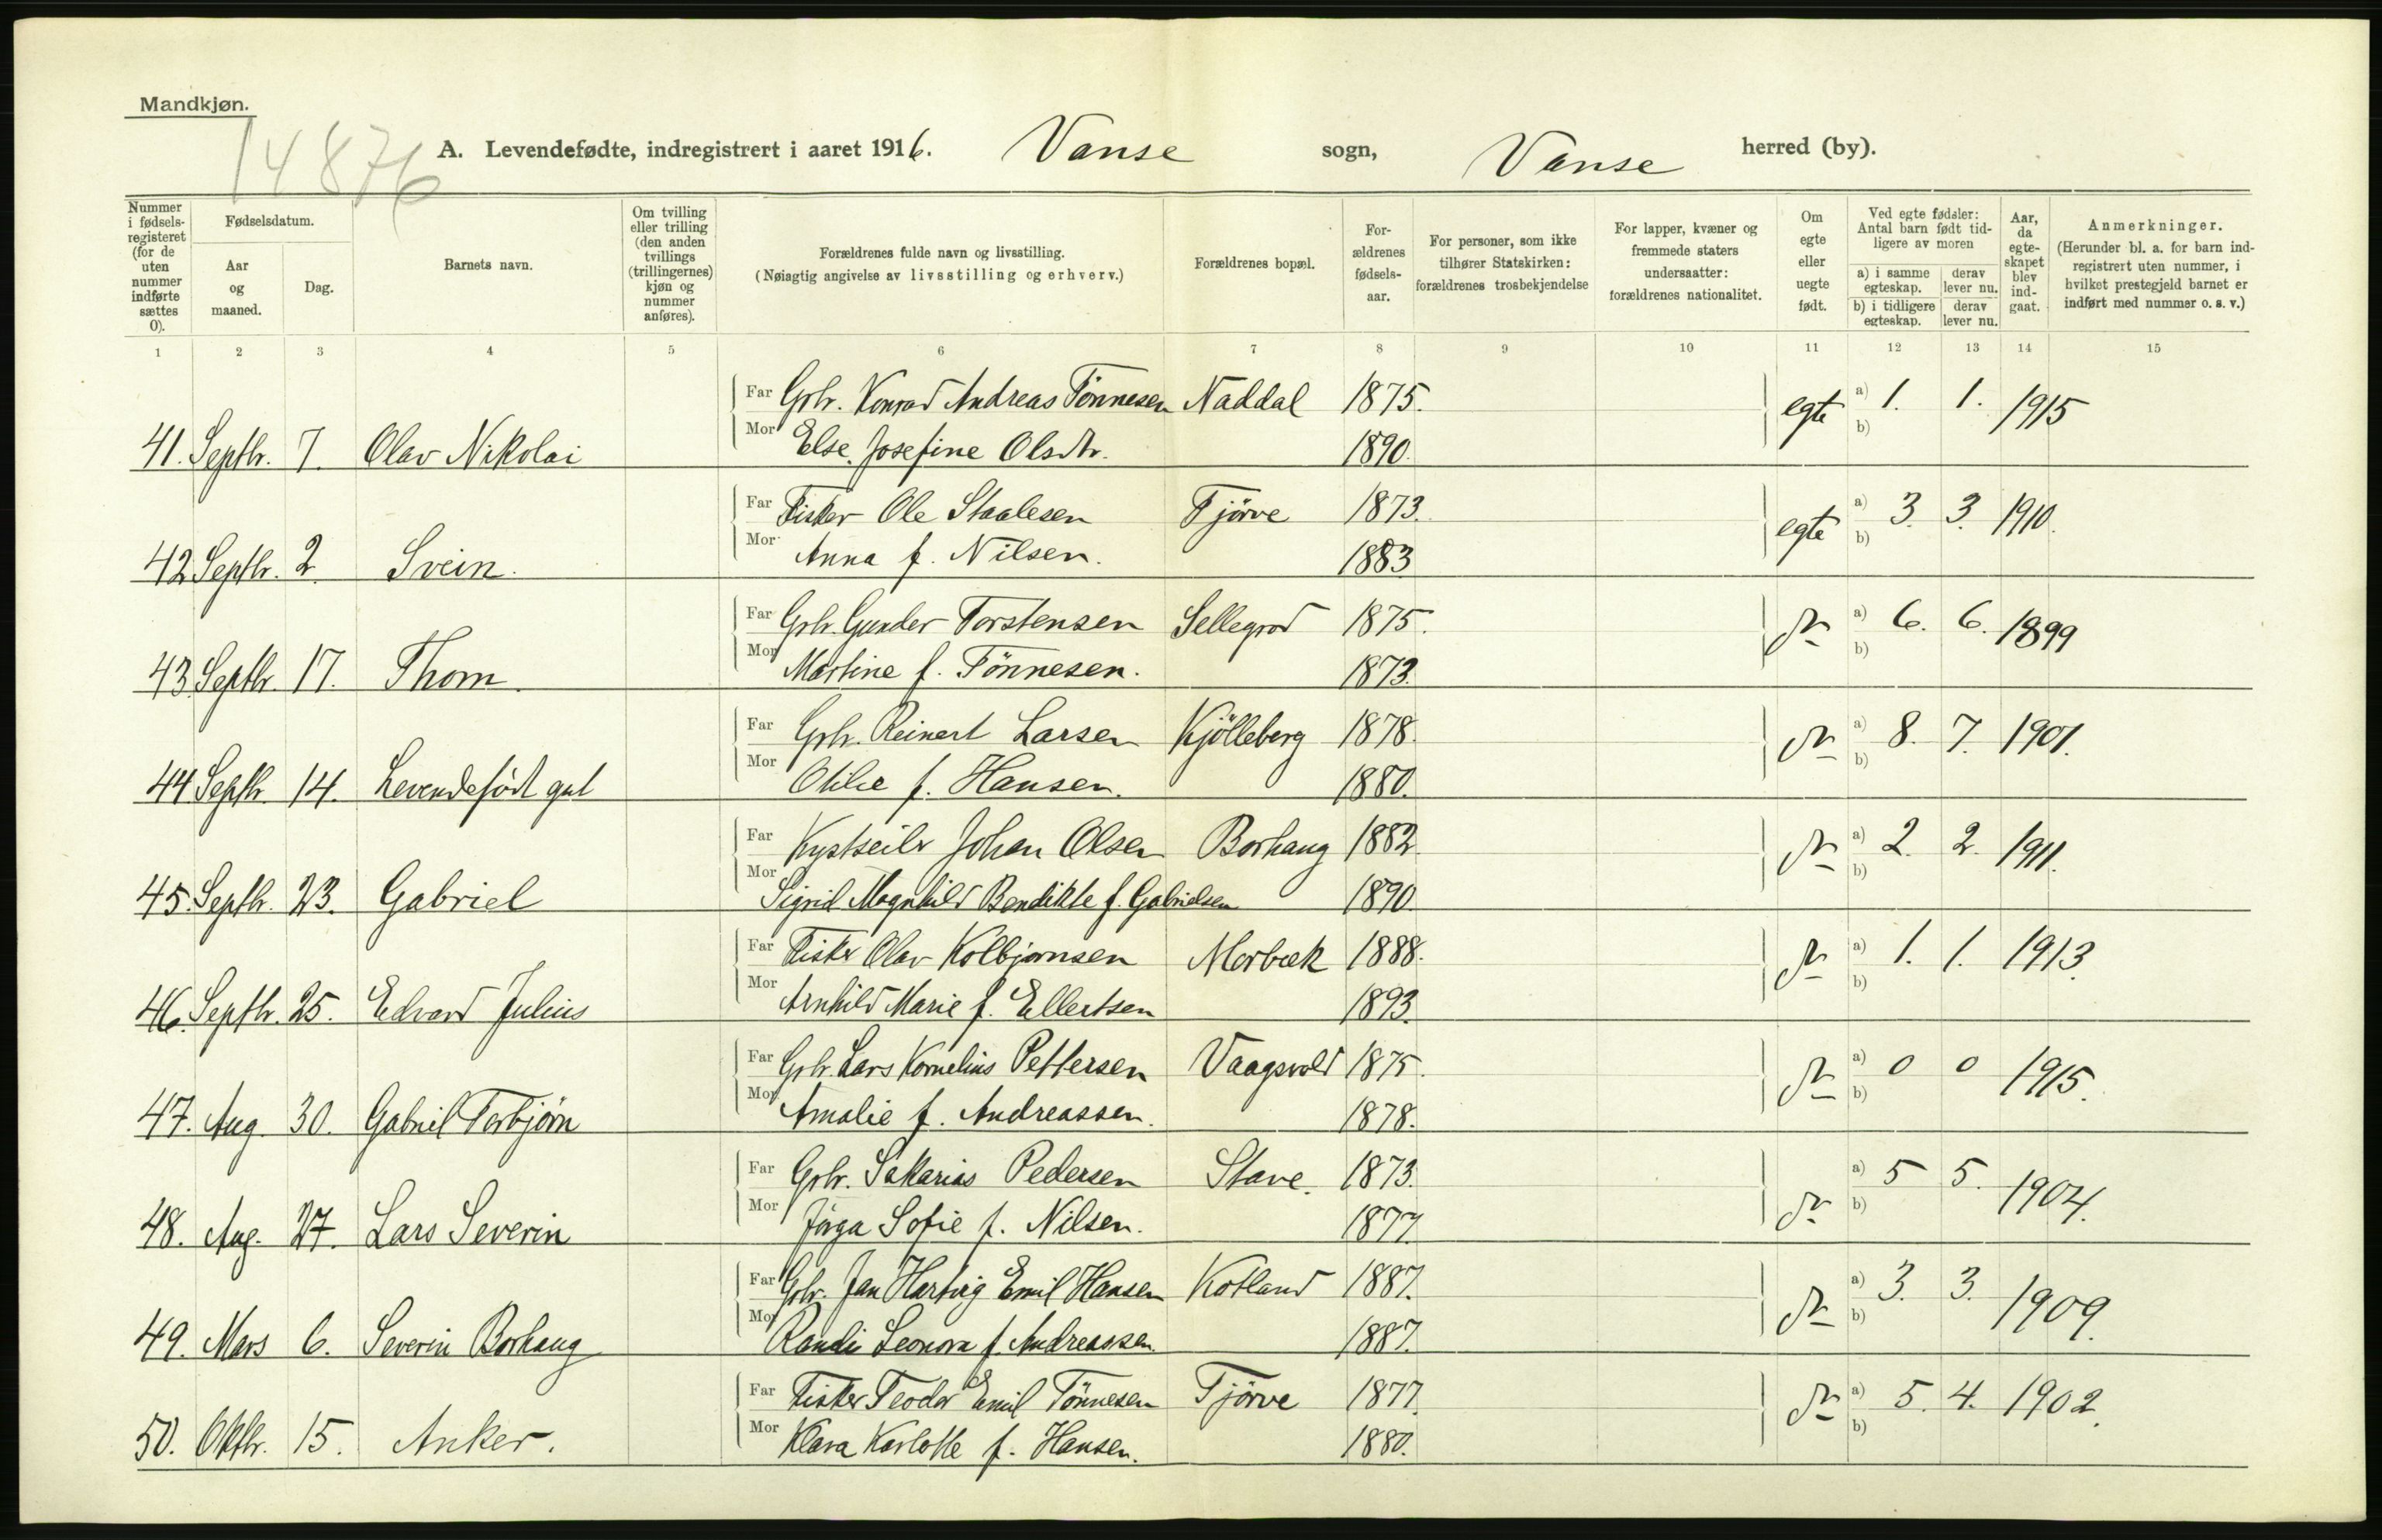 Mandkjøn.
14876
A. Levendefødte, indregistrert i aaret 1916. Vanse sogn, Vanse herred (by).
Nummer i fødsels-registeret (for de uten nummer indførte sættes 0).
Fødselsdatum.
Aar og maaned.
Dag.
Barnets navn.
Om tvilling eller trilling (den anden tvillings (trillingernes) kjøn og nummer anføres).
Forældrenes fulde navn og livsstilling.
(Nøiagtig angivelse av livsstilling og erhverv.)
Forældrenes bopæl.
For-ældrenes fødsels-aar.
For personer, som ikke tilhører Statskirken: forældrenes trosbekjendelse
For lapper, kvæner og fremmede staters undersaatter: forældrenes nationalitet.
Om egte eller uegte født.
Ved egte fødsler: Antal barn født tid-ligere av moren
a) i samme egteskap.
derav lever nu.
b) i tidligere egteskap.
derav lever nu.
Aar, da egte-skapet blev ind-gaat.
Anmerkninger.
(Herunder bl. a. for barn ind-registrert uten nummer, i hvilket prestegjeld barnet er indført med nummer o. s. v.)
1 2 3 4 5 6 7 8 9 10 11 12 13 14 15
Far Grbr. Konrad Andreas Tönnesen Naddal 1875. egte a) 1. 1. 1915
Mor Else Josefine Olsdtr. 1890. b)
41. Septbr. 7. Olav Nikolai
Far Fisker Ole Staalesen Tjörve 1873. egte a) 3. 3. 1910.
Mor Anna f. Nilsen. 1883 b)
42 Septbr. 2. Svein.
Far Grbr. Gunder Torstensen Sellegrod 1875. do a) 6. 6. 1899
Mor Martine f. Tönnesen. 1873. b)
43. Septbr. 17. Thom.
Far Grbr. Reinert Larsen Kjölleberg 1878. do a) 8. 7. 1901.
Mor Otilie f. Hansen. 1880. b)
44 Septbr. 14. Levendefödt gut
Far Kystseiler Johan Olsen Borhaug 1882. do a) 2. 2. 1911.
Mor Sigrid Magnhild Bendikte f. Gabrielsen 1890. b)
45. Septbr. 23. Gabriel
Far Fisker Olav Kolbjørnsen Morbæk 1888. do a) 1. 1. 1913.
Mor Arnhild Marie f. Ellertsen 1893. b)
46. Septbr. 25. Edvard Julius
Far Grbr. Lars Kornelius Pettersen Vaagsvold 1875. do a) 0 0 1915.
Mor Amalie f. Andreassen. 1878. b)
47. Aug. 30. Gabriel Torbjörn
Far Grbr. Sakarias Pedersen Stave. 1873. do a) 5 5. 1904.
Mor Jörga Sofie f. Nilsen. 1877. b)
48. Aug. 27. Lars Severin
Far Grbr. Jan Hartvig Emil Hansen Kotland 1887. do a) 3. 3. 1909.
Mor Randi Leonora f. Andreassen. 1887. b)
49. Mars 6. Severin Borhaug
Far Fisker Teodor Emil Tönnesen Tjörve 1877. do a) 5. 4. 1902.
Mor Klara Karlotte f. Hansen. 1880. b)
50. Oktbr. 15. Anker.